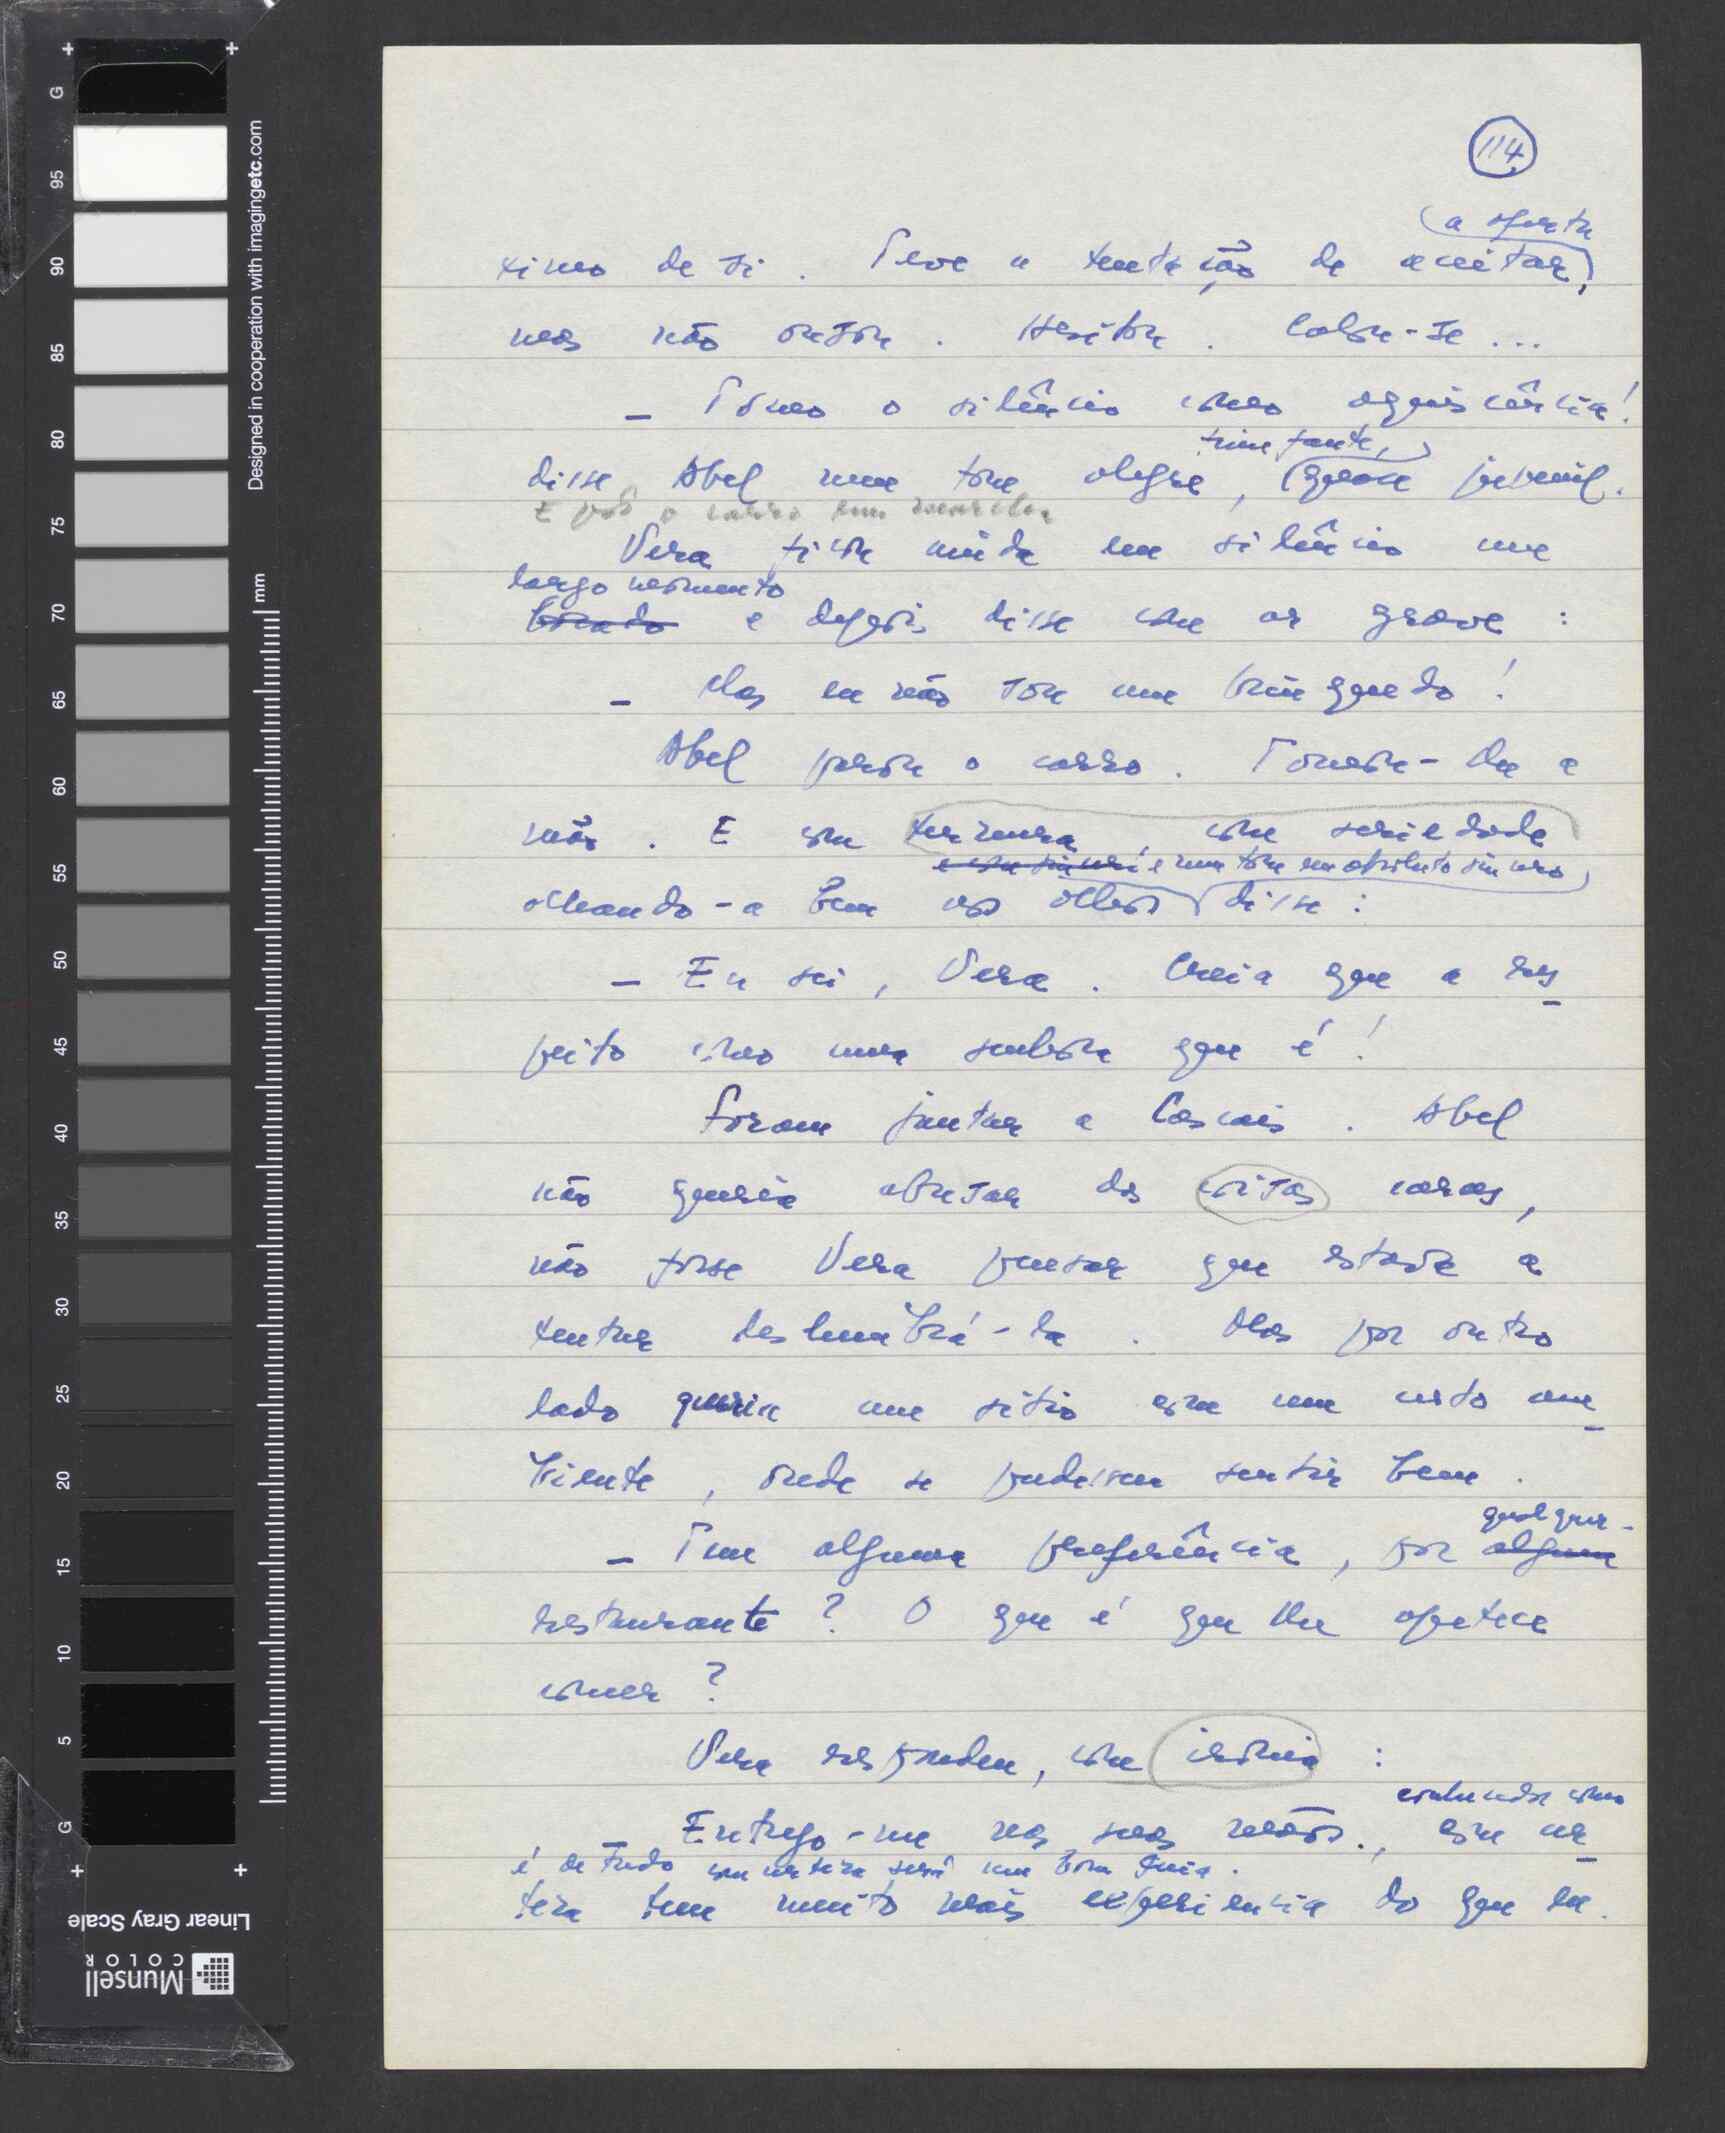 114
a oferta
ximo de si. Teve a tentação de aceitar,
mas não ousou. Hesitou. Calou-se...
- Tomo o silêncio como aquiescência!
triunfante,
disse Abel num tom alegre, quase juvenil.
E pôs o carro em marcha
Vera ficou muda em silêncio um
largo momento
bocado e depois disse com ar grave:
- Mas eu não sou um brinquedo!
Abel parou o carro. Tomou-lhe a
mão. E com ternura, com seriedade
e num tom em absoluto sincero
olhando-a bem nos olhos disse:
- Eu sei, Vera. Creia que a res
peito como uma senhora que é!
Foram jantar a Cascais. Abel
não queria abusar das coisas caras,
não fosse Vera pensar que estava a
tentar deslumbrá-la. Mas por outro
lado queria um sítio com um certo am
biente, onde se pudessem sentir bem.
qualquer
- Tem alguma preferência, por algum
restaurante? O que é que lhe apetece
comer?
Vera respondeu, com ironia:
conhecedor como
Entrego-me nas suas mãos., com cer
é de tudo com certeza será um bom guia.
teza tem muito mais experiencia do que eu.
Designed in cooperation with imagingetc.com
mm
G
95
90
85
80
75
70
65
60
55
50
45
40
35
30
25
20
15
10
5
G
Linear Gray Scale
Munsell
COLOR